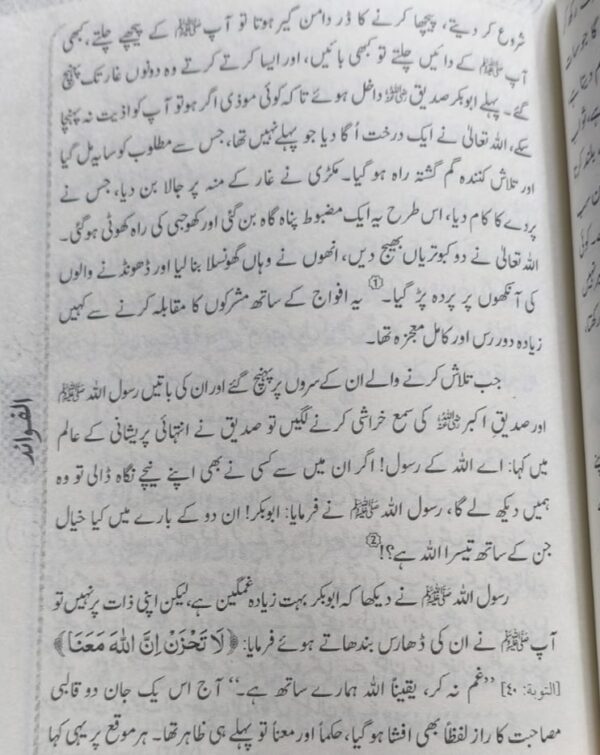 شروع کر دیتے، پیچھا کرنے کا ڈر دامن گیر ہوتا تو آپ ﷺ کے پیچھے چلتے، کبھی
آپ ﷺ کے دائیں چلتے تو کبھی بائیں، اور ایسا کرتے کرتے وہ دونوں غار تک پہنچ
گئے۔ پہلے ابوبکر صدیق رضی اللہ عنہ داخل ہوئے تا کہ کوئی موذی اگر ہو تو آپ کو اذیت نہ پہنچا
سکے، اللہ تعالیٰ نے ایک درخت اُگا دیا جو پہلے نہیں تھا، جس سے مطلوب کو سایہ مل گیا
اور تلاش کنندہ گم گشتہ راہ ہو گیا۔ مکڑی نے غار کے منہ پر جالا بن دیا، جس نے
پردے کا کام دیا، اس طرح یہ ایک مضبوط پناہ گاہ بن گئی اور کھوجی کی راہ کھوٹی ہوگئی۔
اللہ تعالیٰ نے دو کبوتریاں بھیج دیں، انھوں نے وہاں گھونسلا بنا لیا اور ڈھونڈنے والوں
کی آنکھوں پر پردہ پڑ گیا۔① یہ افواج کے ساتھ مشرکوں کا مقابلہ کرنے سے کہیں
زیادہ دور رس اور کامل معجزہ تھا۔
جب تلاش کرنے والے ان کے سروں پر پہنچ گئے اور ان کی باتیں رسول اللہ ﷺ
اور صدیقِ اکبر رضی اللہ عنہ کی سمع خراشی کرنے لگیں تو صدیق نے انتہائی پریشانی کے عالم
میں کہا: اے اللہ کے رسول! اگر ان میں سے کسی نے بھی اپنے نیچے نگاہ ڈالی تو وہ
ہمیں دیکھ لے گا، رسول اللہ ﷺ نے فرمایا: ابوبکر! ان دو کے بارے میں کیا خیال
جن کے ساتھ تیسرا اللہ ہے؟!②
رسول اللہ ﷺ نے دیکھا کہ ابوبکر بہت زیادہ غمگین ہے، لیکن اپنی ذات پر نہیں تو
آپ ﷺ نے ان کی ڈھارس بندھاتے ہوئے فرمایا: ﴿لَا تَحْزَنْ اِنَّ اللّٰهَ مَعَنَا﴾
[التوبة: ٤٠] ”غم نہ کر، یقیناً اللہ ہمارے ساتھ ہے۔“ آج اس یک جان دو قالبی
مصاحبت کا راز لفظاً بھی افشا ہو گیا، حکماً اور معناً تو پہلے ہی ظاہر تھا۔ ہر موقع پر یہی کہا
الفوائد